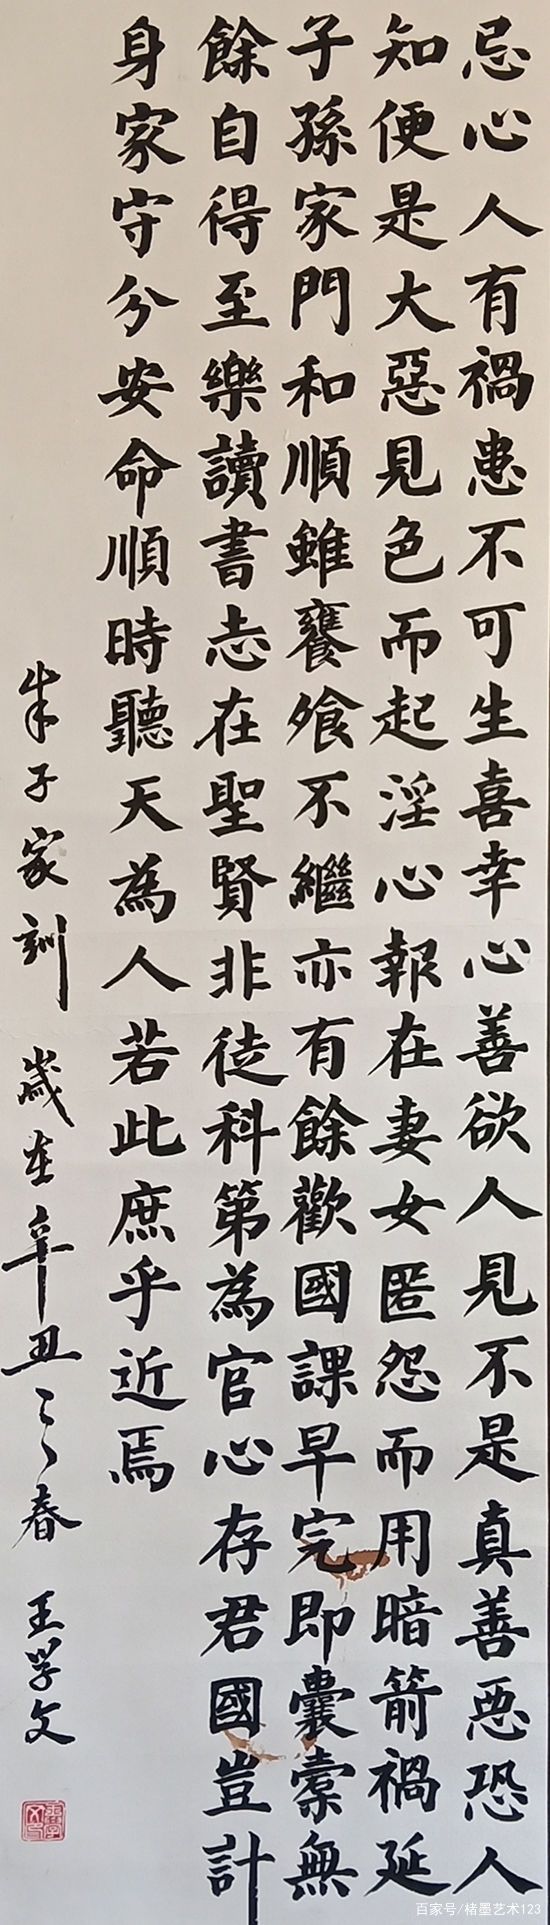 忌心人有禍患不可生喜幸心善欲人見不是真善惡恐人
知便是大惡見色而起淫心報在妻女匿怨而用暗箭禍延
子孫家門和順雖饔飧不繼亦有餘歡國課早完即囊橐無
餘自得至樂讀書志在聖賢非徒科第為官心存君國豈計
身家守分安命順時聽天為人若此庶乎近焉
朱子家訓 歲在辛丑之春 王學文
百家号/楮墨艺术123